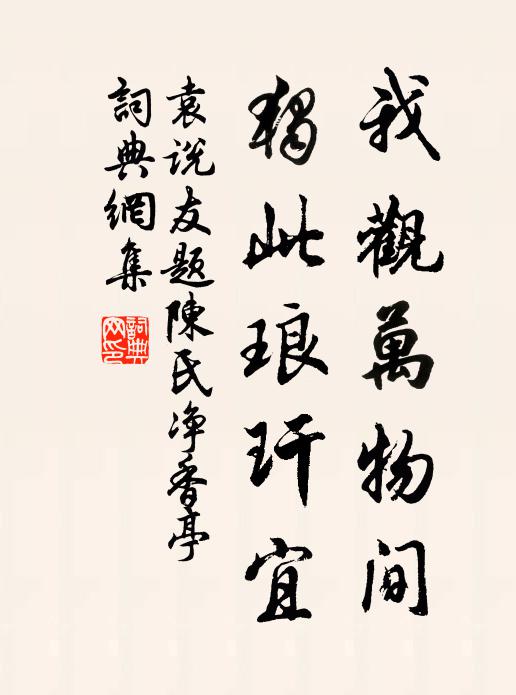 我觀萬物间
獨此琅玕宜
袁说友题陳氏净香亭
詞典網集
詞典网印